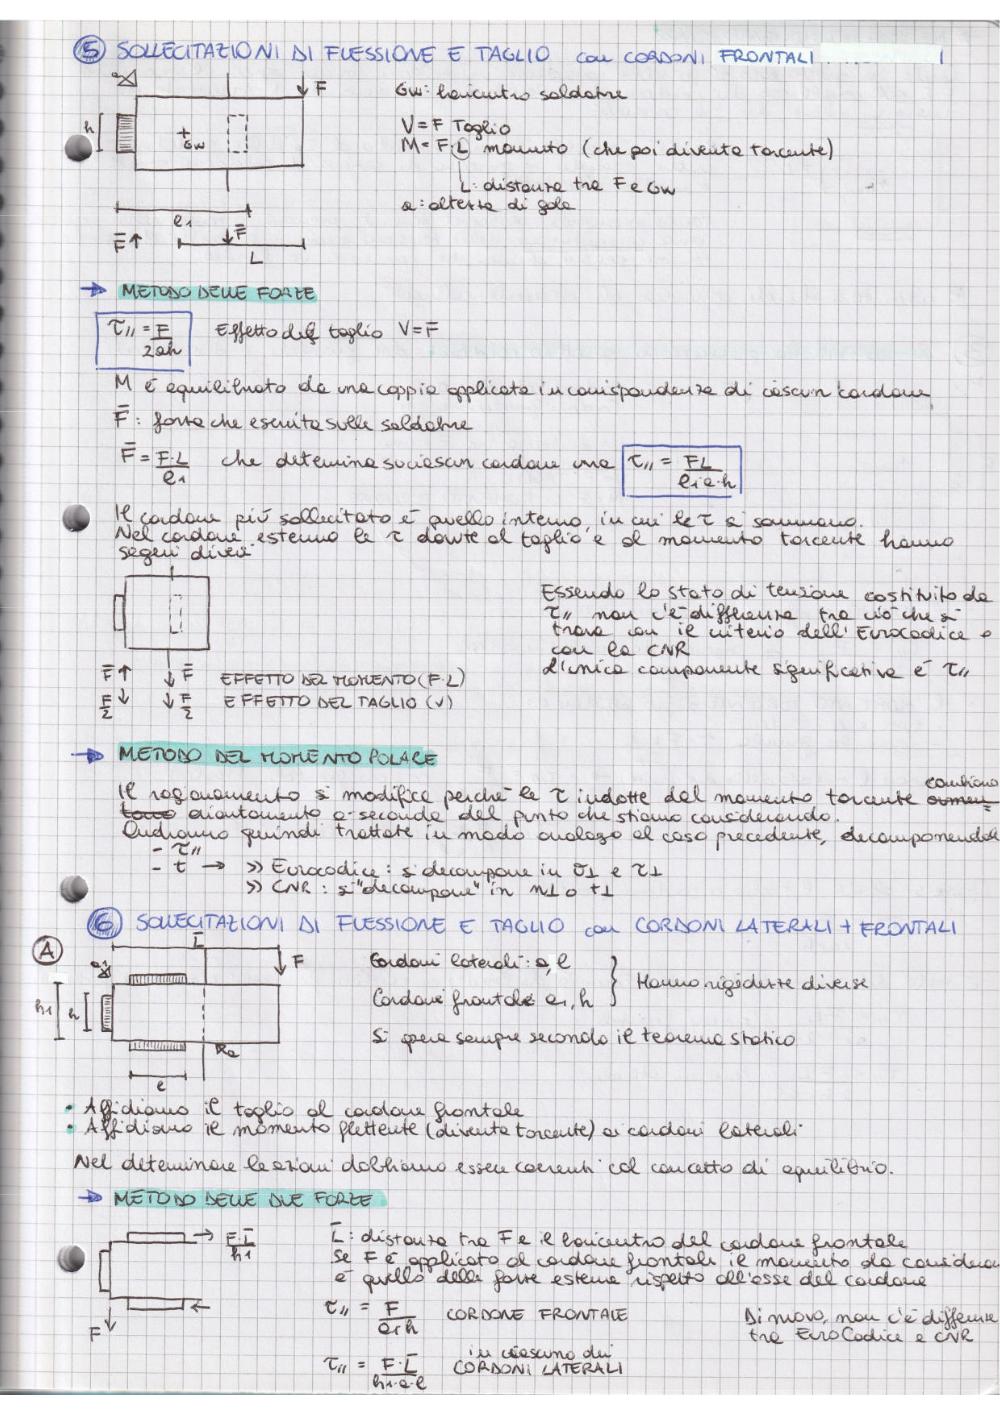 5 SOLLECITAZIONI DI FLESSIONE E TAGLIO con CORDONI FRONTALI
F
h
Gw
e1
F̄
F̄
L
Gw: baricentro saldature
V = F Taglio
M = F·L momento (che poi diventa torcente)
L: distanza tra F e Gw
a: altezza di gola
→ METODO DELLE FORZE
τ// = F/2ah Effetto del taglio V = F
M è equilibrato da una coppia applicata in corrispondenza di ciascun cordone
F̄: forza che esercita sulle saldature
F̄ = F·L/e1 che determina su ciascun cordone una τ// = FL/e1·a·h
Il cordone più sollecitato è quello interno, in cui le τ si sommano.
Nel cordone esterno le τ dovute al taglio e al momento torcente hanno
segni diversi
Essendo lo stato di tensione costituito da
τ// non c'è differenza tra ciò che si
trova con il criterio dell'Eurocodice e
con la CNR
L'unica componente significativa è τ//
F̄↑ ↓F̄ EFFETTO DEL MOMENTO (F·L)
F/2↓ ↓F/2 EFFETTO DEL TAGLIO (V)
→ METODO DEL MOMENTO POLARE
Il ragionamento si modifica perché le τ indotte dal momento torcente cambiano
a seconda del punto che stiamo considerando.
Andranno quindi trattate in modo analogo al caso precedente, decomponendole
- τ//
- t → >> Eurocodice: si decompone in σ⊥ e τ⊥
>> CNR: si "decompone" in n⊥ o t⊥
6 SOLLECITAZIONI DI FLESSIONE E TAGLIO con CORDONI LATERALI + FRONTALI
A
L̄
F
h1
h
e
Cordoni laterali: a, l
Cordone frontale a1, h
Hanno rigidezze diverse
Si opera sempre secondo il teorema statico
• Affidiamo il taglio al cordone frontale
• Affidiamo il momento flettente (diventa torcente) ai cordoni laterali
Nel determinare le azioni dobbiamo essere coerenti col concetto di equilibrio.
→ METODO DELLE DUE FORZE
→ F·L̄/h1
F↓
L̄: distanza tra F e il baricentro del cordone frontale
Se F è applicato al cordone frontale il momento da considerare
è quello delle forze esterne rispetto all'asse del cordone
τ// = F/a1h CORDONE FRONTALE
Di nuovo, non c'è differenza
tra EuroCodice e CNR
τ// = F·L̄/h1·a·l in ciascuno dei CORDONI LATERALI